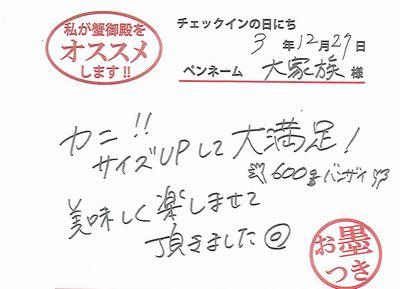 私が蟹御殿を
オススメ
します!!
チェックインの日にち
3年12月27日
ペンネーム 大家族 様
カニ!!
サイズUPして大満足!
600gバンザイ
美味しく楽しませて
頂きました
お墨
つき